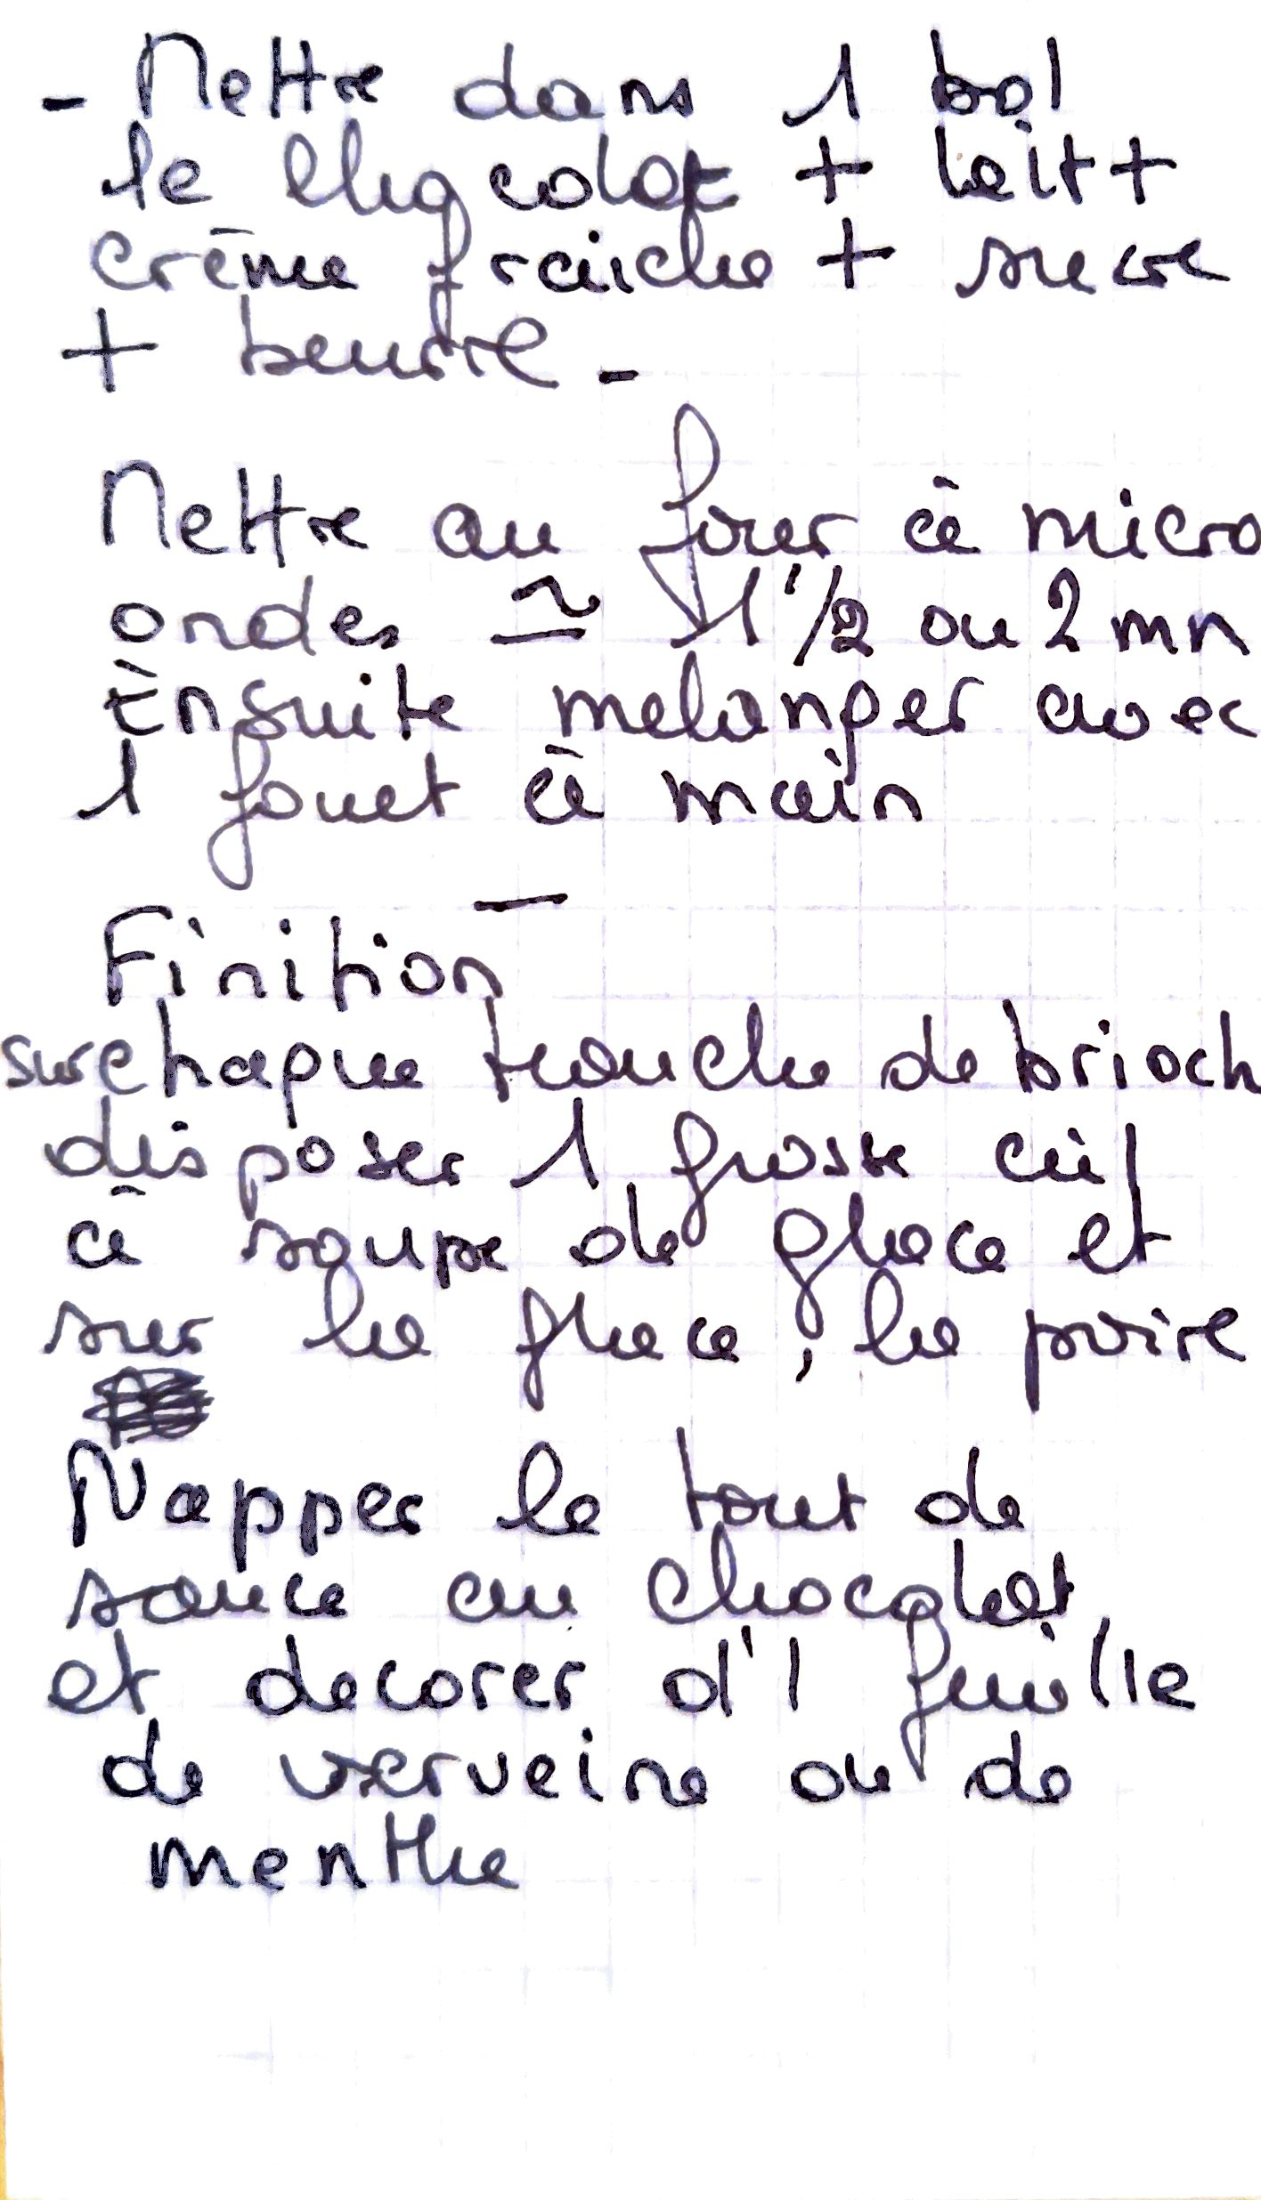 - Mettre dans 1 bol
le chocolat + lait +
crème fraiche + sucre
+ beurre -
Mettre au four à micro
ondes ≃ 1'1/2 ou 2 mn
Ensuite melanger avec
1 fouet à main
Finition
sur chaque tranche de brioch
disposer 1 grosse cuil
à soupe de glace et
sur la glace, la poire
Napper le tout de
sauce au chocolat
et decorer d'1 feuille
de verveine ou de
menthe